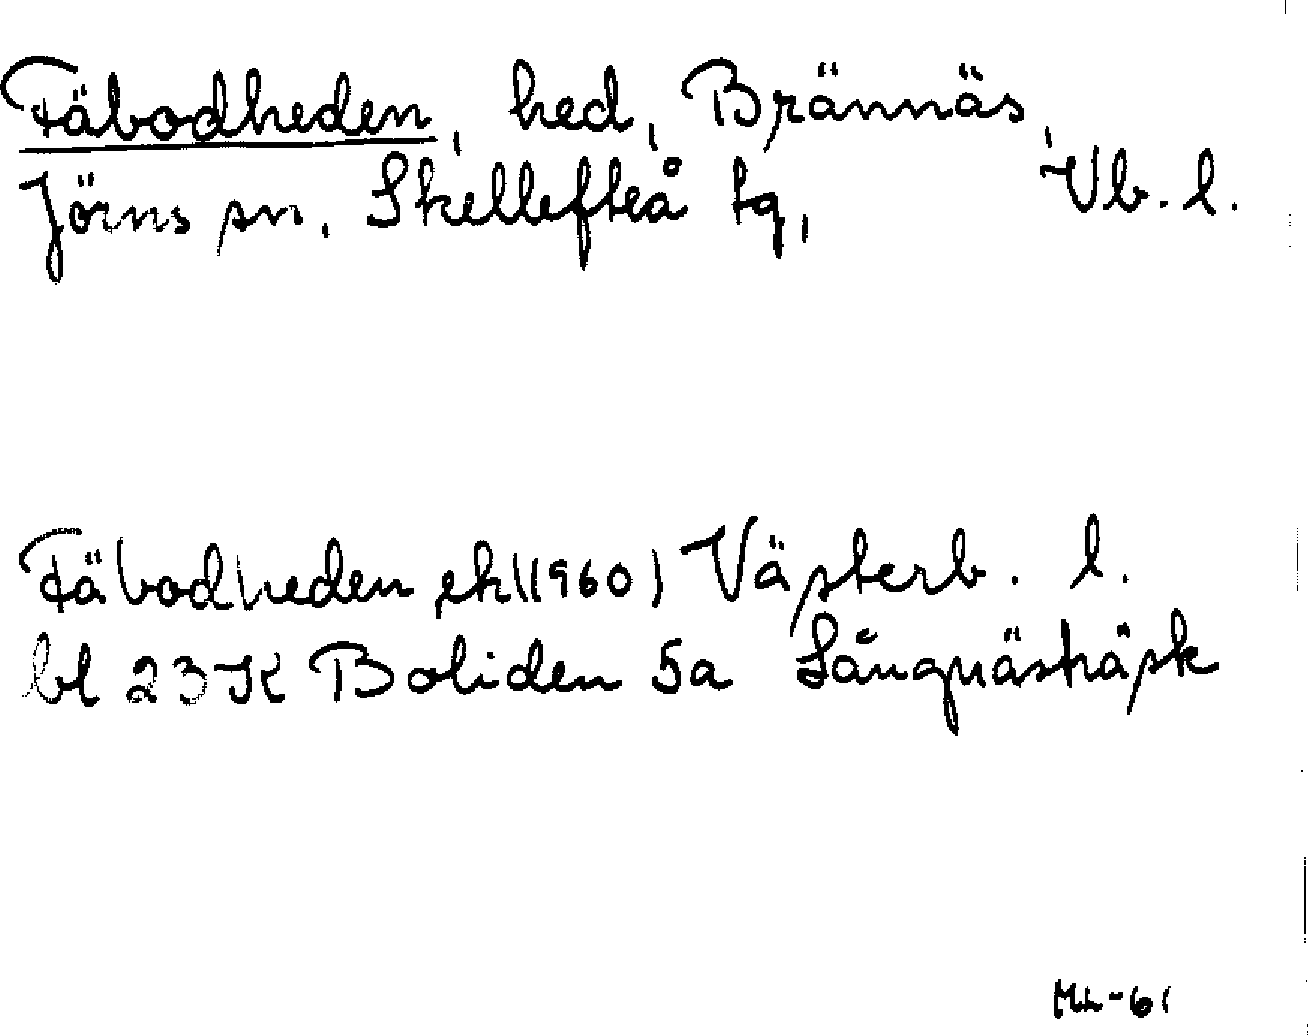 Fäbodheden, hed, Brännäs,
Jörns sn, Skellefteå tg, Vb. l.
Fäbodheden ek (1960) Västerb. l.
bl 23 K Boliden 5a Långnästräsk
ML-61